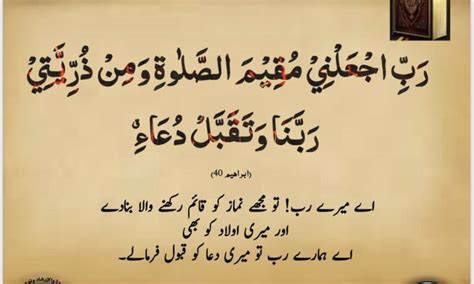 رَبِّ اجْعَلْنِيْ مُقِيْمَ الصَّلٰوةِ وَمِنْ ذُرِّيَّتِيْ
رَبَّنَا وَتَقَبَّلْ دُعَاءِ
(ابراھیم 40)
اے میرے رب! تو مجھے نماز کو قائم رکھنے والا بنادے
اور میری اولاد کو بھی
اے ہمارے رب تو میری دعا کو قبول فرمالے۔